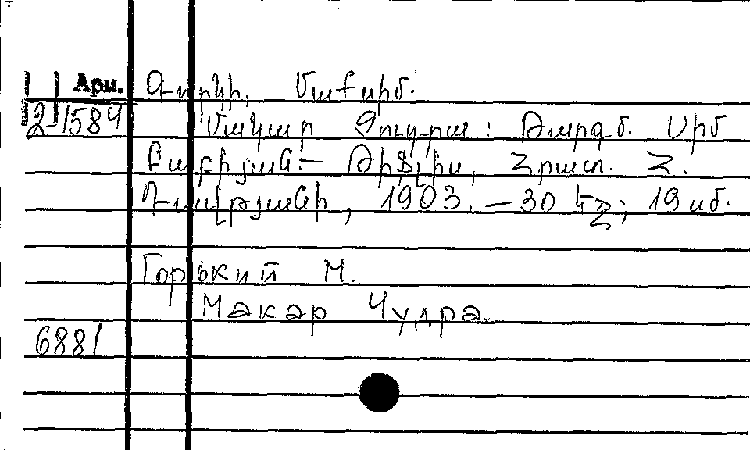 Арм. Գորկի, Մաքսիմ.
2-1589 Մակար Չուդրա: Թարգմ. Սիմ
Բաբիյան։— Թիֆլիս, Հրատ. Հ.
Դավթյանի, 1903. — 30 էջ; 19 սմ.
Горький М.
Макар Чудра.
6881